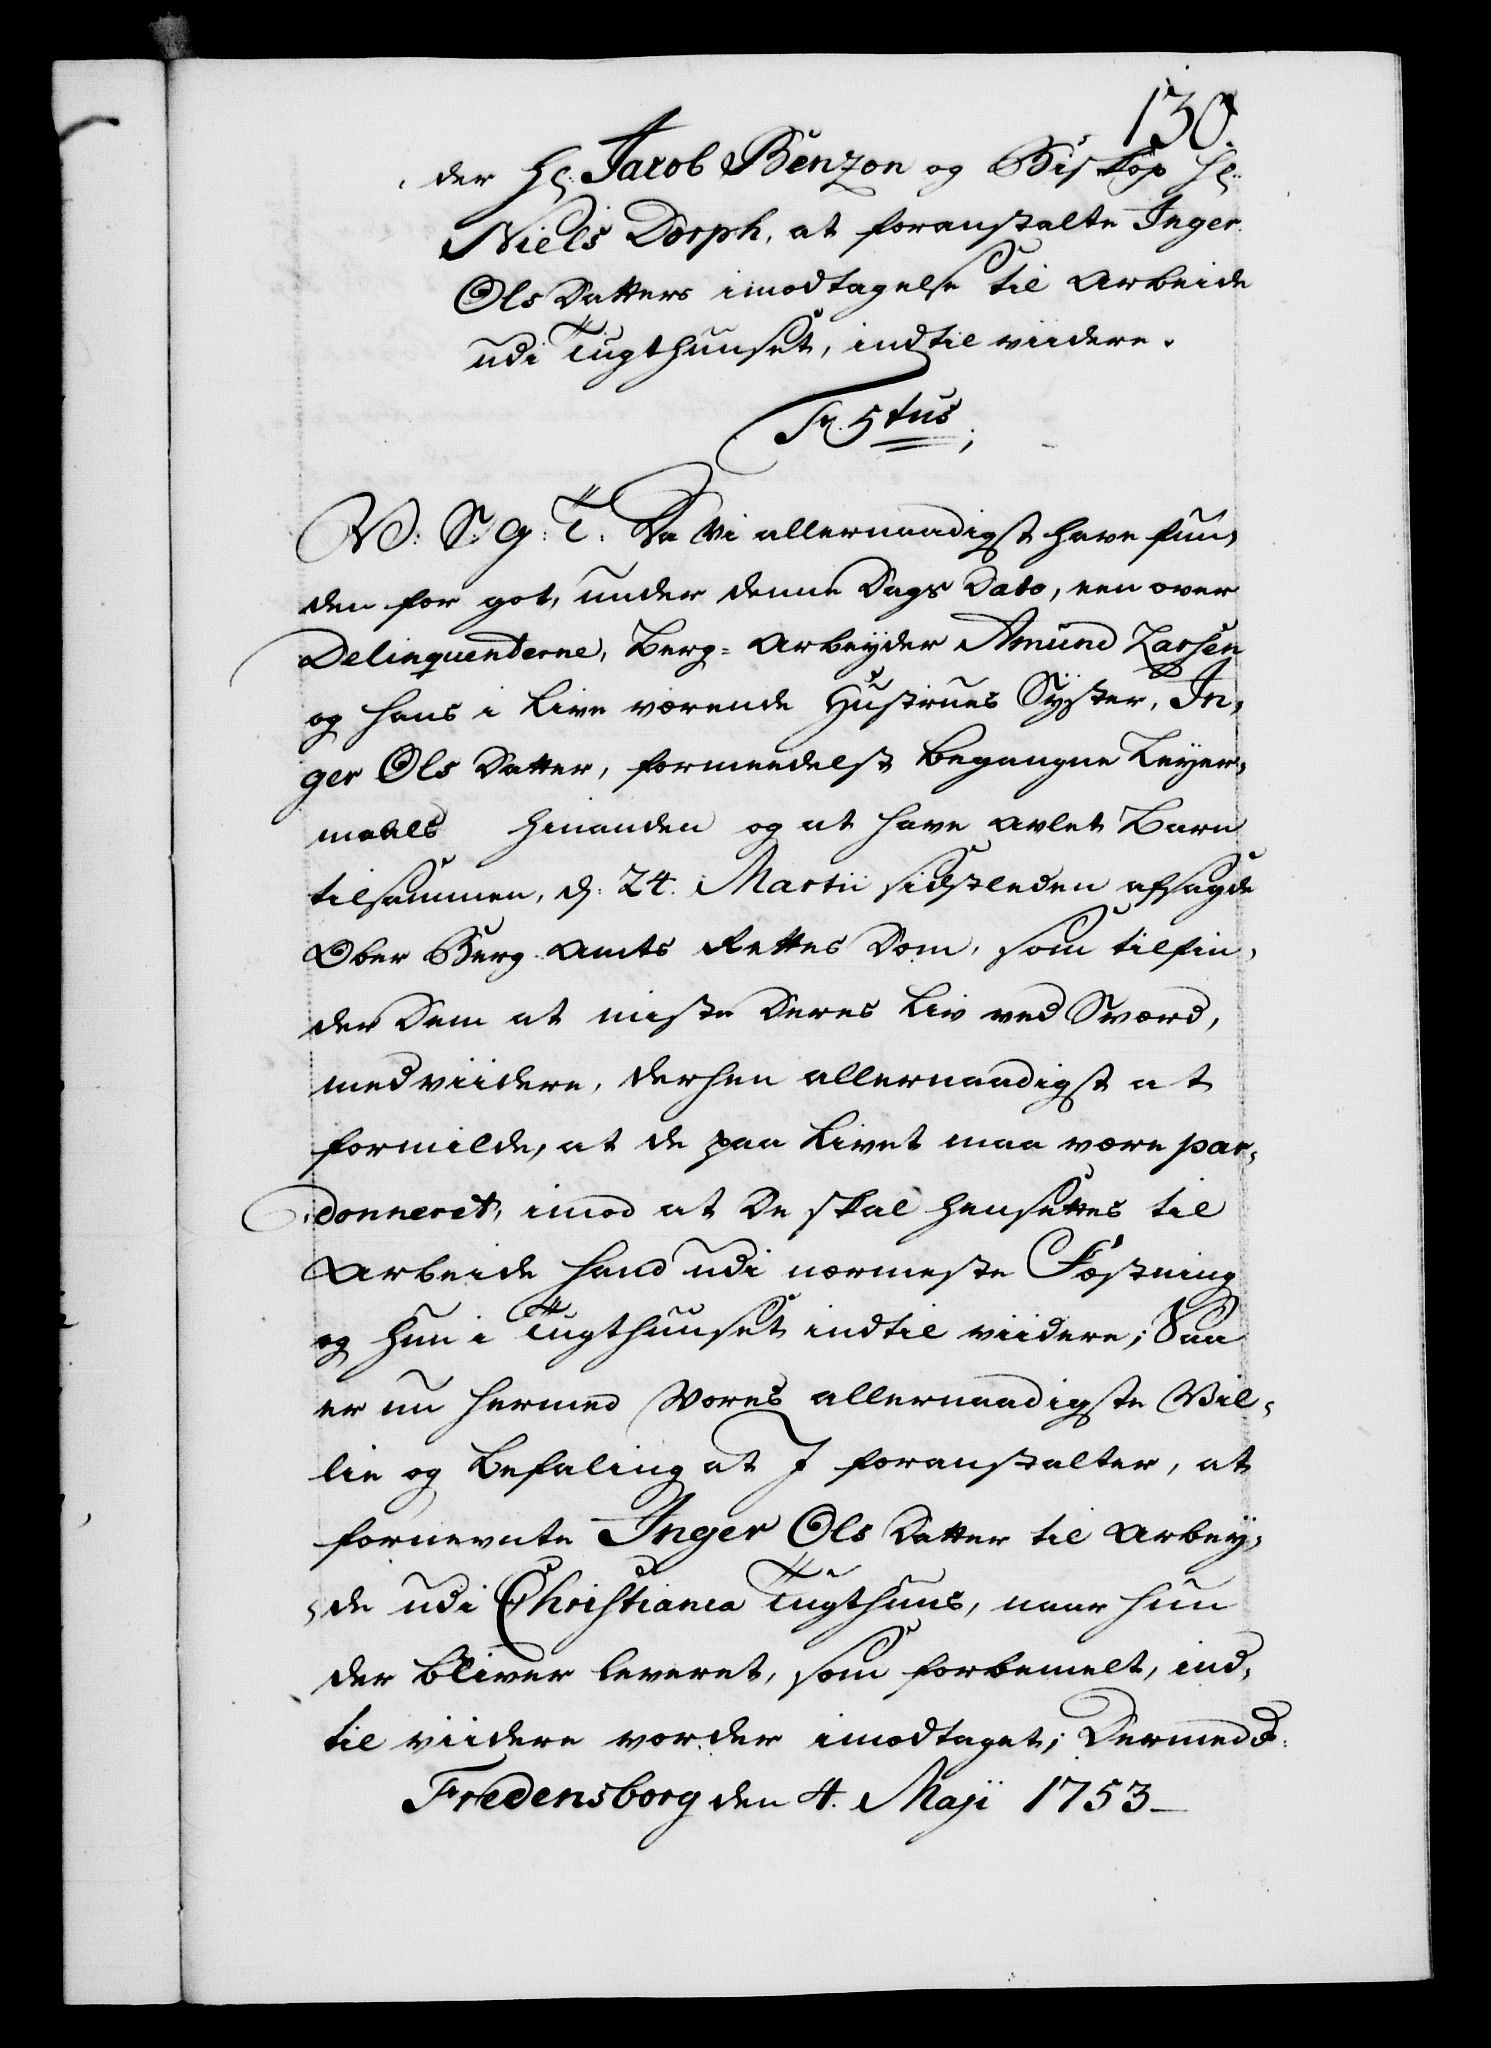 130.
der Hr: Jacob Benzon og Biskop Hr:
Niels Dorph, at foranstalte Inger
Ols Datters imodtagelse til Arbeide
udi Tugthuuset, indtil viidere.
Fr. 5tus,
V: S: G: T: Da Vi allernaadigst have fun,
den for got, under denne Dags Dato, een over
Delinquenterne, Berg-Arbeyder Amund Larsen
og hans i Live værende Hustrues Syster, In,
ger Ols Datter, formeedelst begangne Leyer,
maals hinanden og at have avlet Barn
tilsammen, d: 24. Martii sidstleden afsagde
Ober Berg Amts Rettes Dom, som tilfin,
der Dem at miste Deres Liv ved Sværd,
med viidere, derhen allernaadigst at
formilde, at de paa Livet maa være par,
donneret, imod at De skal hensættes til
Arbeide hand udi nærmeste Fæstning
og hun i Tugthuuset indtil viidere; Saa
er nu hermed Vores allernaadigste Vil,
lie og Befaling at I foranstalter, at
fornevnte Inger Ols Datter til Arbey,
de udi Christiania Tugthuus, naar hun
der bliver leveret, som forbemelt, ind,
til viidere vorder imodtaget; Dermed &
Fredensborg den 4. Maji 1753